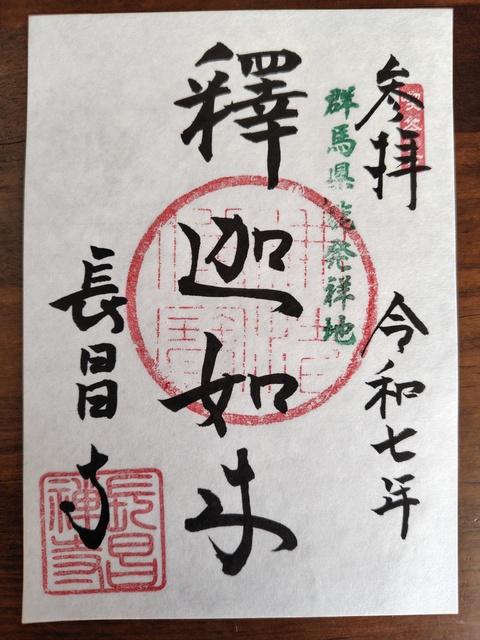 参拝
令和七年
群馬県龍発祥地
釋迦如来
長昌寺
長昌
禅寺